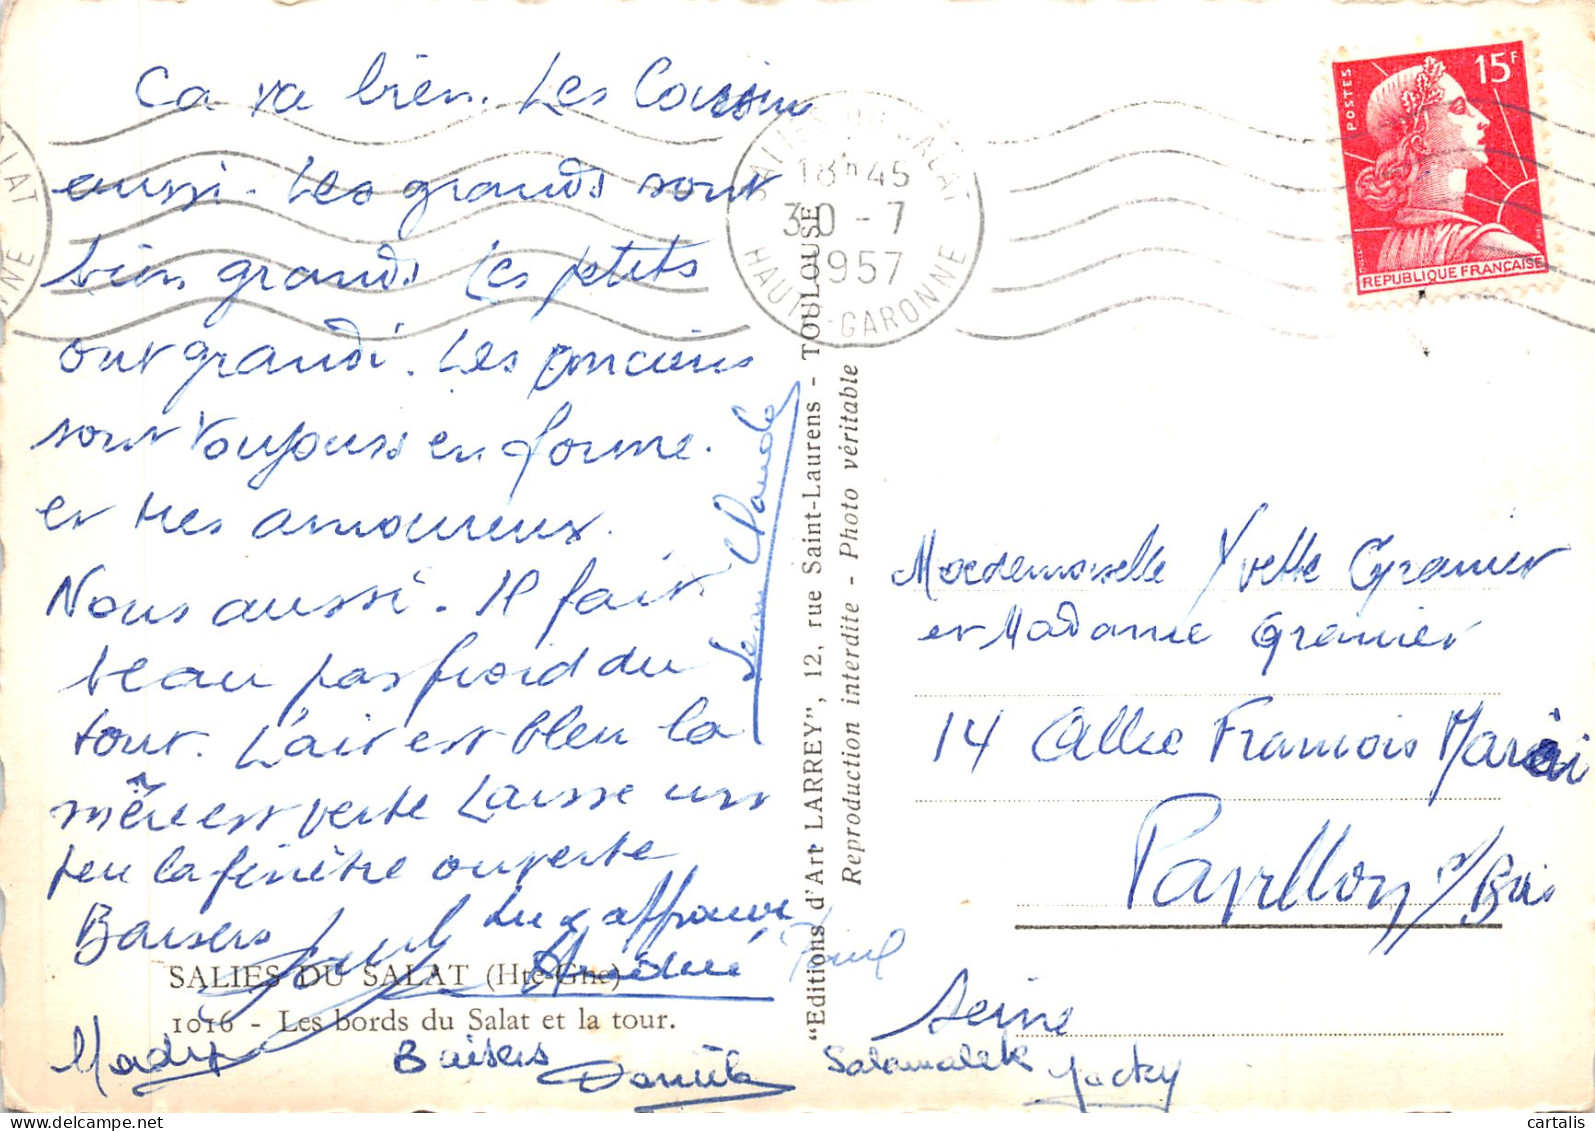 Ca va bien. Les Cousins
aussi. Les grands sont
bien grands Les petits
ont grandi. Les anciens
sont toujours en forme.
et tres amoureux.
Nous aussi. Il fait
beau pas froid du
tout. L'air est bleu la
mêre est verte Laisse un
peu la fenêtre ouverte
Baisers
Jean Claude
Paul
SALIES DU SALAT (Hte-Gne)
1016 - Les bords du Salat et la tour.
Mady
Baisers
Danièle
Salamalek
Jacky
"Editions d'Art LARREY", 12, rue Saint-Laurens - TOULOUSE
Reproduction interdite - Photo véritable
SALIES DU SALAT
18h45
30-7
1957
HAUTE-GARONNE
POSTES
15F
REPUBLIQUE FRANÇAISE
Mademoiselle Yvette Granier
et Madame Granier
14 Allée François
Pavillon s/Bois
Seine
cartalis